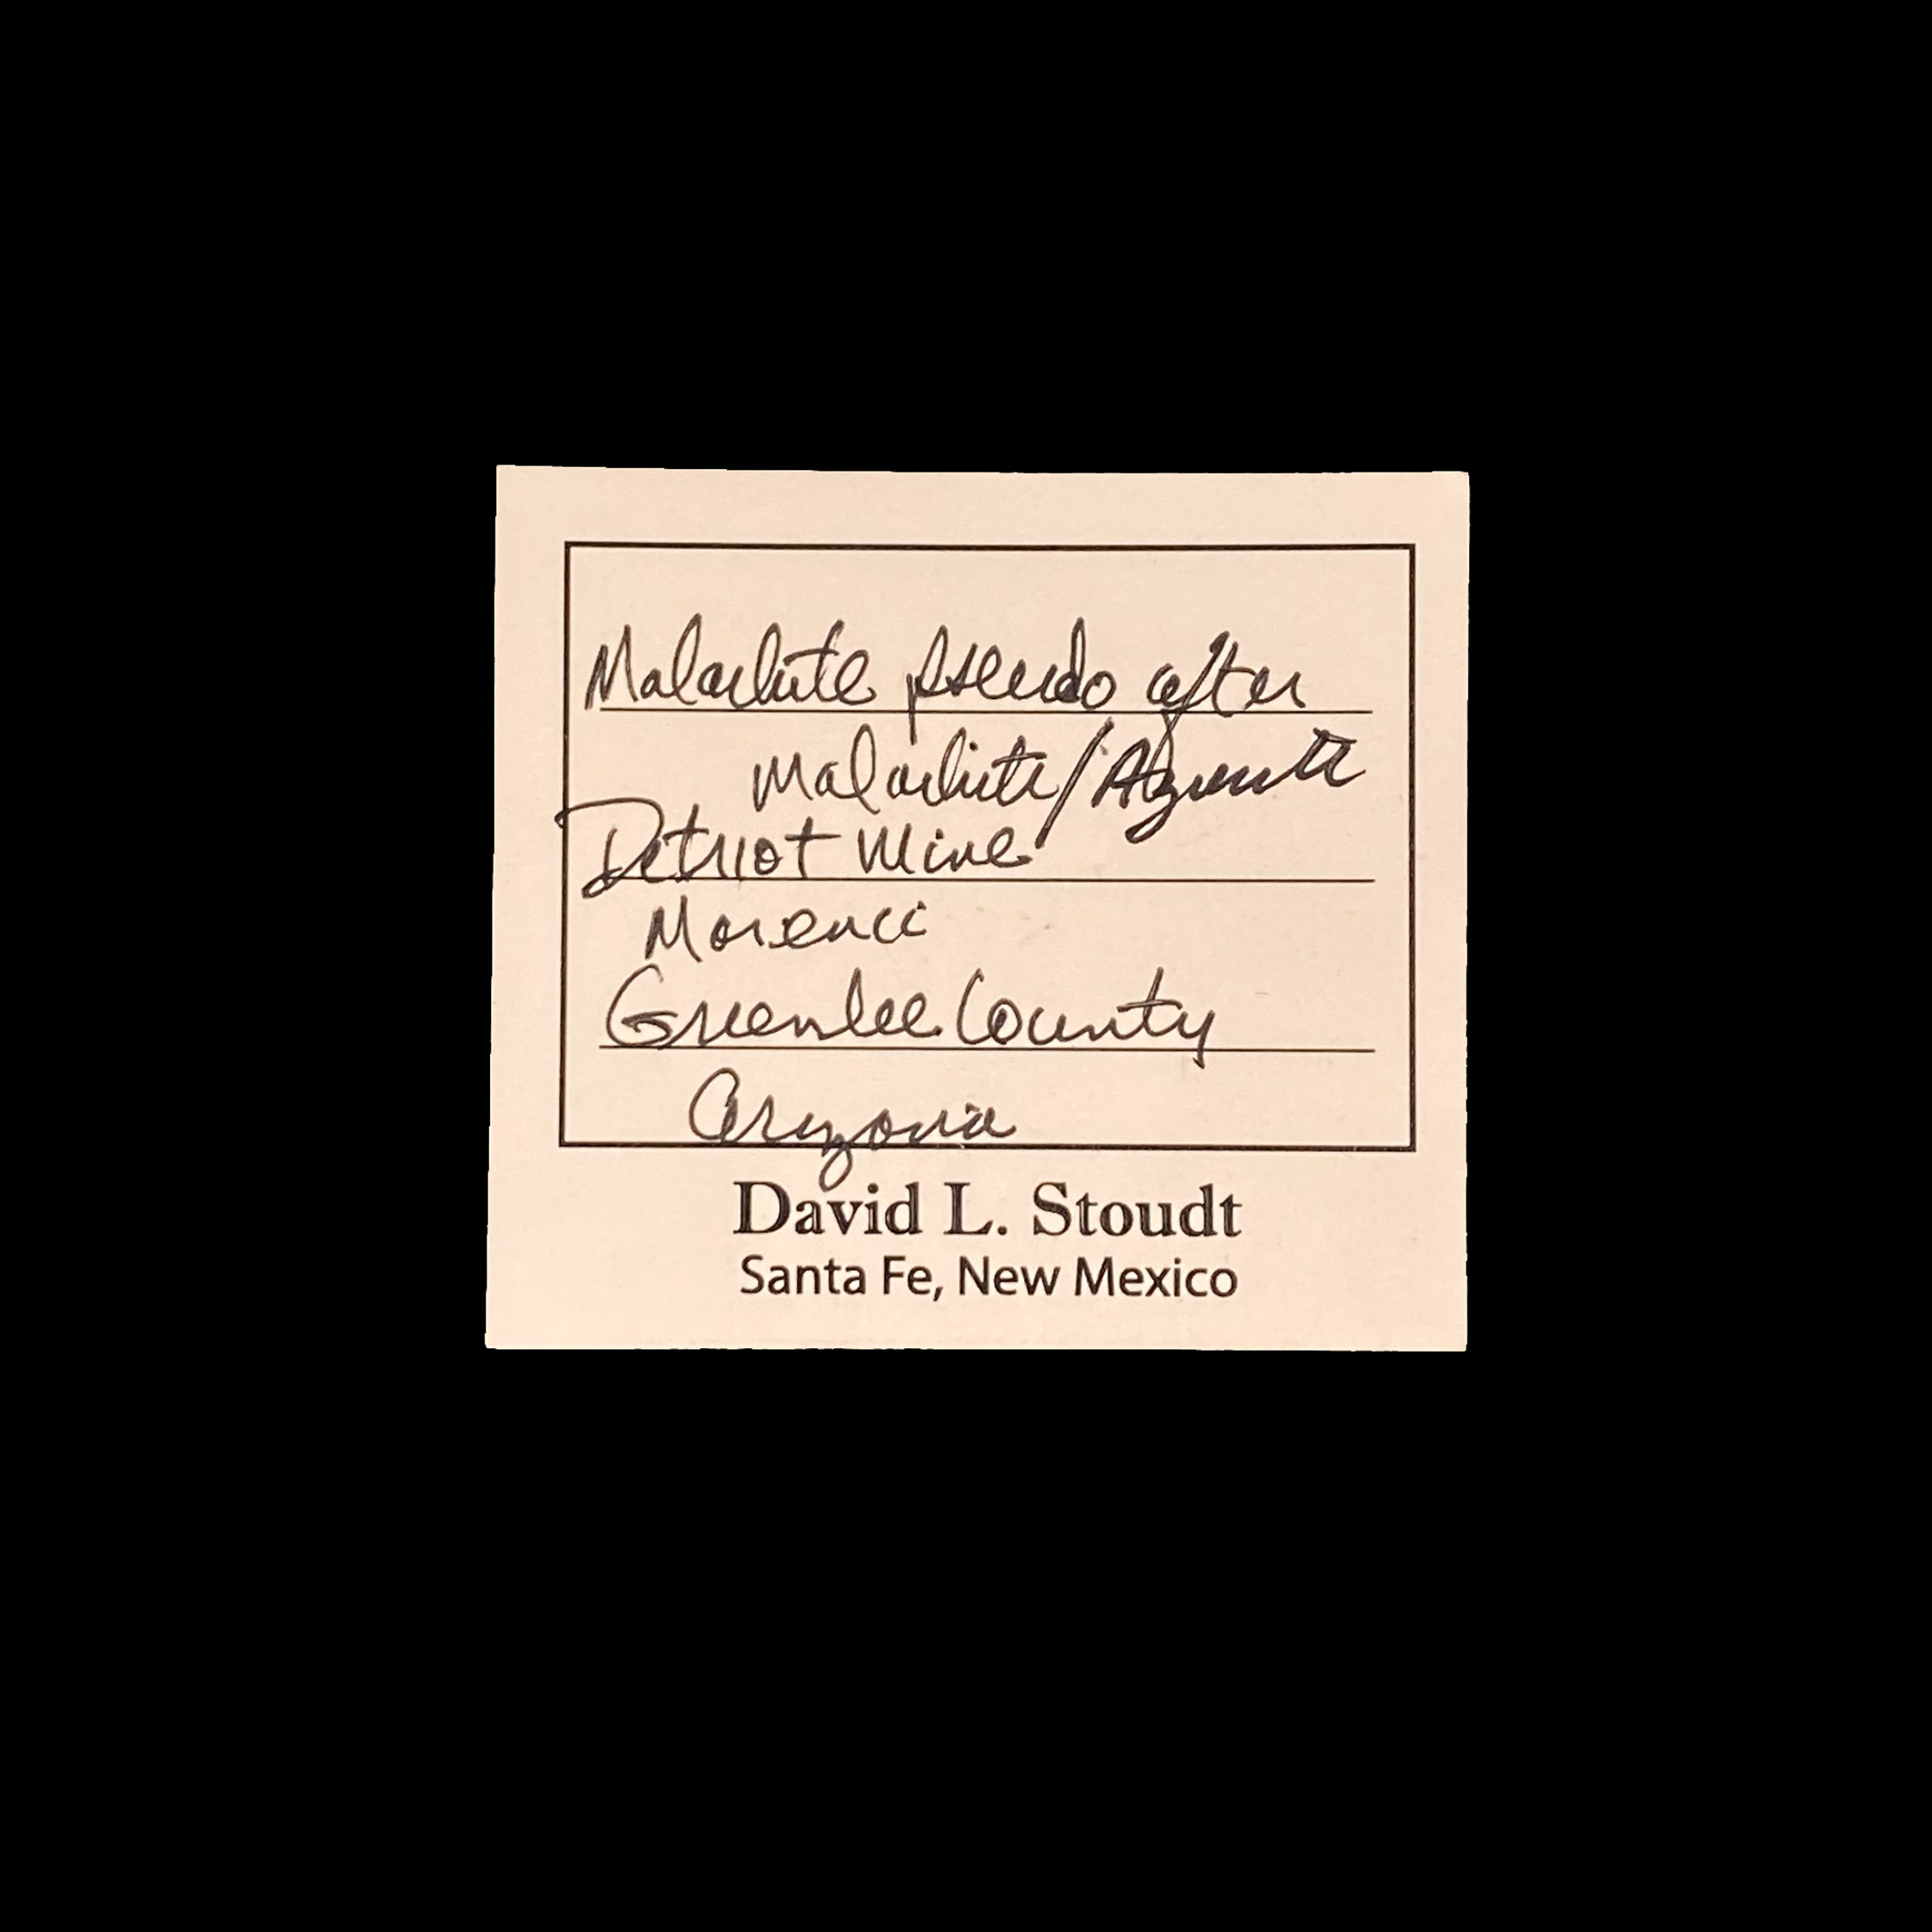 Malachite pseudo after
Malachite/Azurite
Detriot Mine
Morenci
Greenlee County
Arizona
David L. Stoudt
Santa Fe, New Mexico